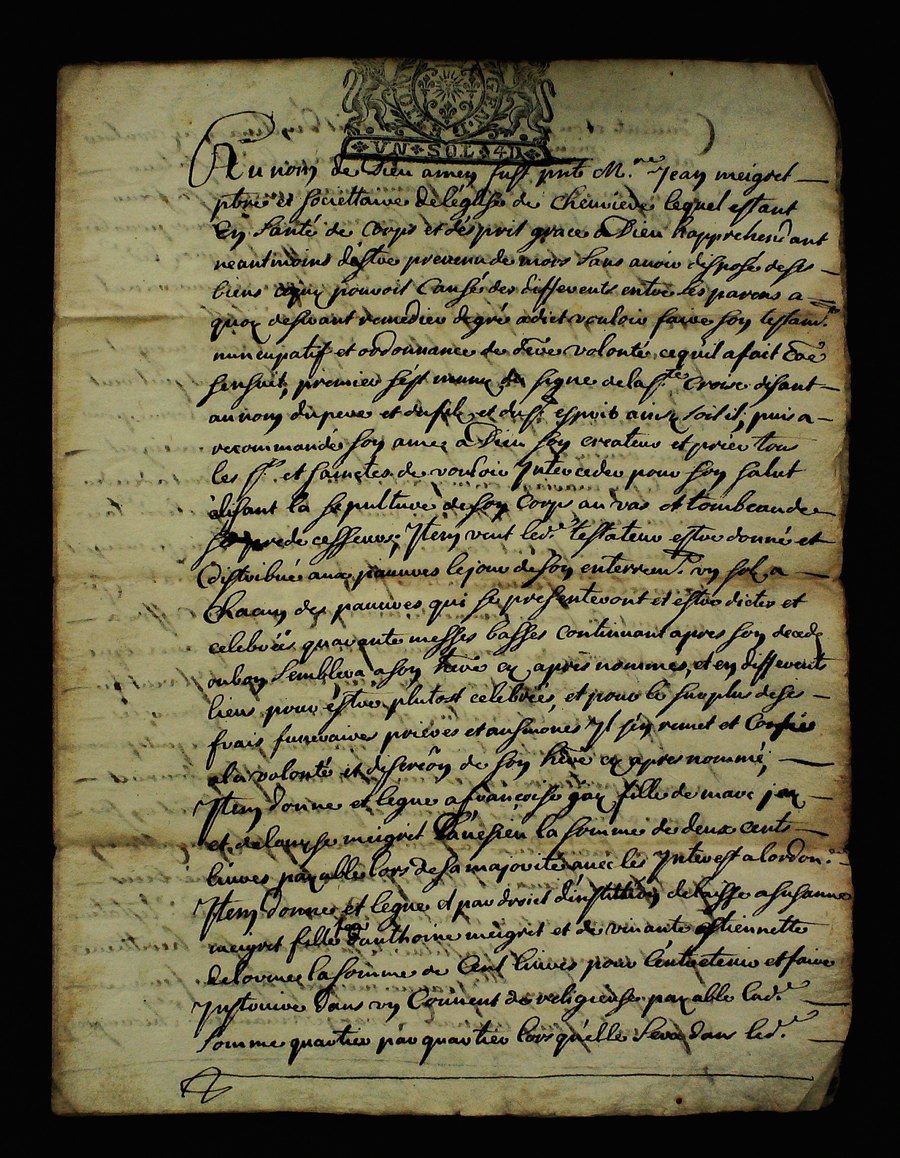 GEN · D · LION
VN · SOL · 4D
Au nom de Dieu amen fust pnt Mre Jean meigret
pbre et societtaire de leglise de cheuriere lequel estant
En santé de corps et desprit grace a Dieu happrehendant
neantmoins destre preuenu de mort sans auoir disposé de ses
biens ce qui pouroit causer des differents entre ses parens a
quoy desirant remedier de gré a dict vouloir faire son testamt
nuncupatif et ordonnance de dere volonté ce quil a fait coe
sensuit, premier sest muny du signe de la ste Croix disant
au nom du pere et du fils et du st esprit ainsy soit il, puis a
recommandé son ame a Dieu son createur et prier tous
les sts et sainctes de vouloir Interceder pour son salut
elisant la sepulture de son corps au vas et tombeau de
predecesseurs; Item veut led. testateur estre donné et
distribué aux pauures le jour de son enterremt vn sol a
chacun des pauures qui se presenteront et estre dictes et
celebrées quarante messes basses continuant apres son decedz
ou bon semblera a son here cy apres nommé, et en differents
lieux pour estre plutost celebrées, et pour le surplus de ses
frais funeraires prieres et ausmones Il sen remet et confie
a la volonté et discreôn de son here cy apres nommé,
Item donne et legue a francoise jay fille de marc jay
et de louyse meigret la somme de deux cents
liures payable lors de sa majorité auec les Interest a lordonce
Item donne et legue et par droict dinstitution delaisse a susanne
meigret fille danthoine meigret et de viuante estiennette
delorme la somme de cent liures pour lentretenir et faire
Instruire dans vn Conuent de religieuse payable lade
somme quartier par quartier lors quelle sera dans led.